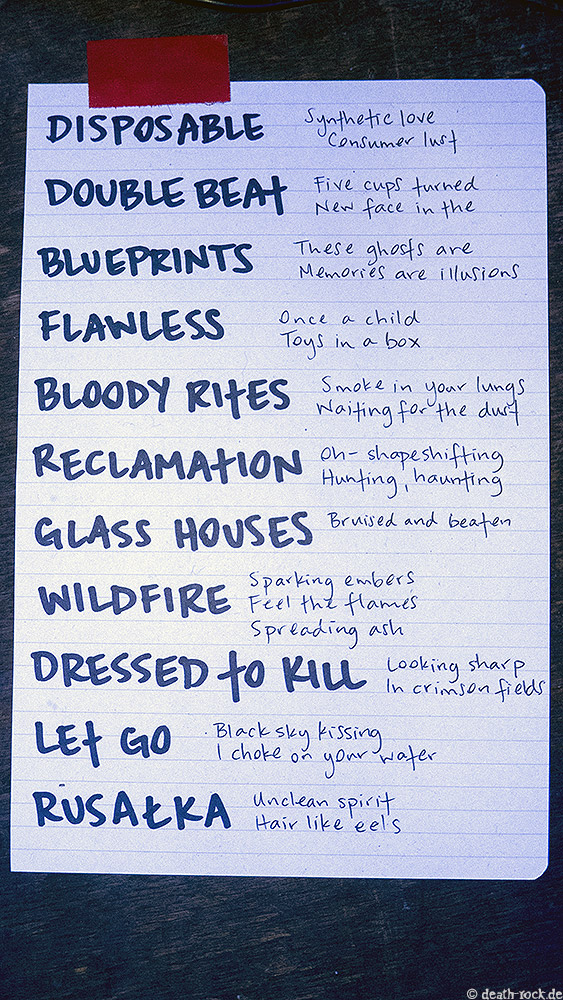 DISPOSABLE
Synthetic love
Consumer lust
DOUBLE BEAT
Five cups turned
New face in the
BLUEPRINTS
These ghosts are
Memories are illusions
FLAWLESS
Once a child
Toys in a box
BLOODY RITES
Smoke in your lungs
Waiting for the dust
RECLAMATION
Oh- shapeshifting
Hunting, haunting
GLASS HOUSES
Bruised and beaten
WILDFIRE
Sparking embers
Feel the flames
Spreading ash
DRESSED to KILL
Looking sharp
In crimson fields
LET GO
Black sky kissing
I choke on your water
RUSAŁKA
Unclean spirit
Hair like eels
© death-rock.de